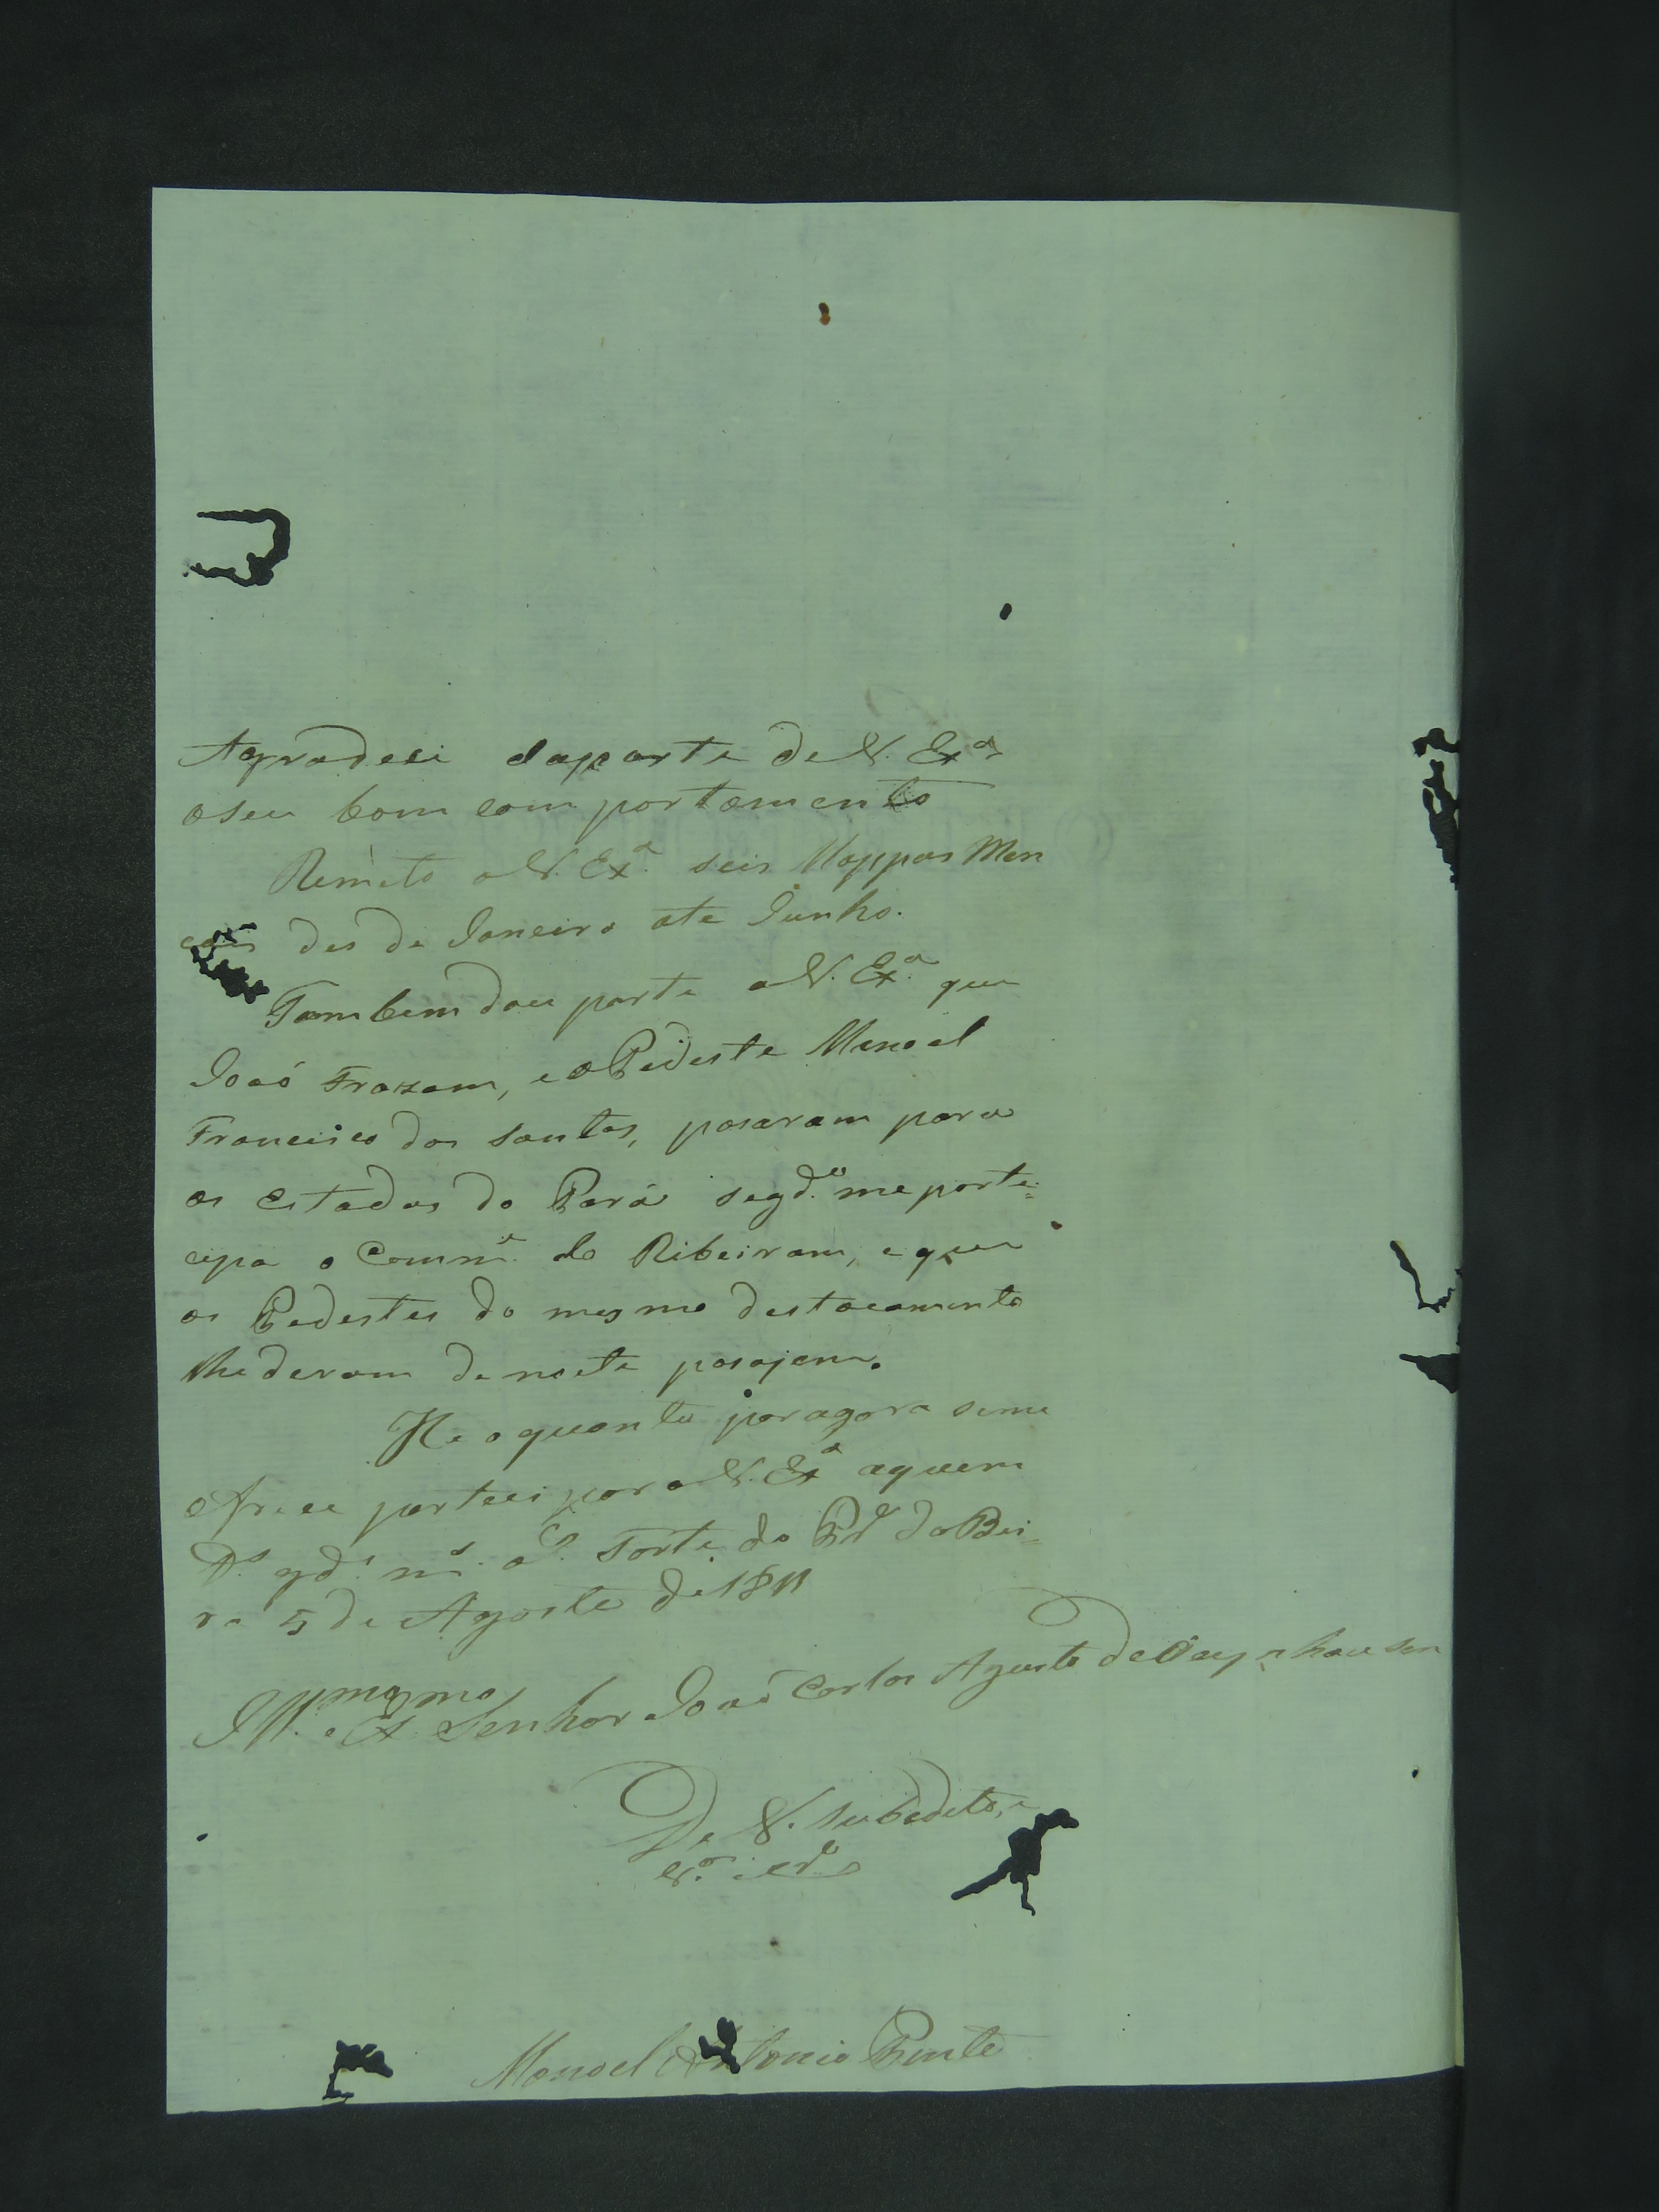 Agradesi daparte de V. Exª
oseu bom comportamento
Remeto a V. Exª seis Mappas Men
çais des de Janeiro ate Junho.
Tambem dou parte a V. Exª que
Joaó Frazam, eo Pedeste Manoel
Francisco dos Santos, pasaram para
os Estados do Pará segd.º me parte=
cipa o Comm.e do Ribeiram, eque
os Pedestes do mesmo destacamento
lhederam denoite pasajem.
He oquanto poragora seme
ofrece partecipar a V. Exª aquem
D.s gd.e m.s a.s Forte do P.e da Bei=
ra 5 de Agosto de 1811
Ill.mo e Ex.mo Senhor Joaó Carlos Agusto de Oaynhausen
De V. Subedito, e
Manoel Antonio